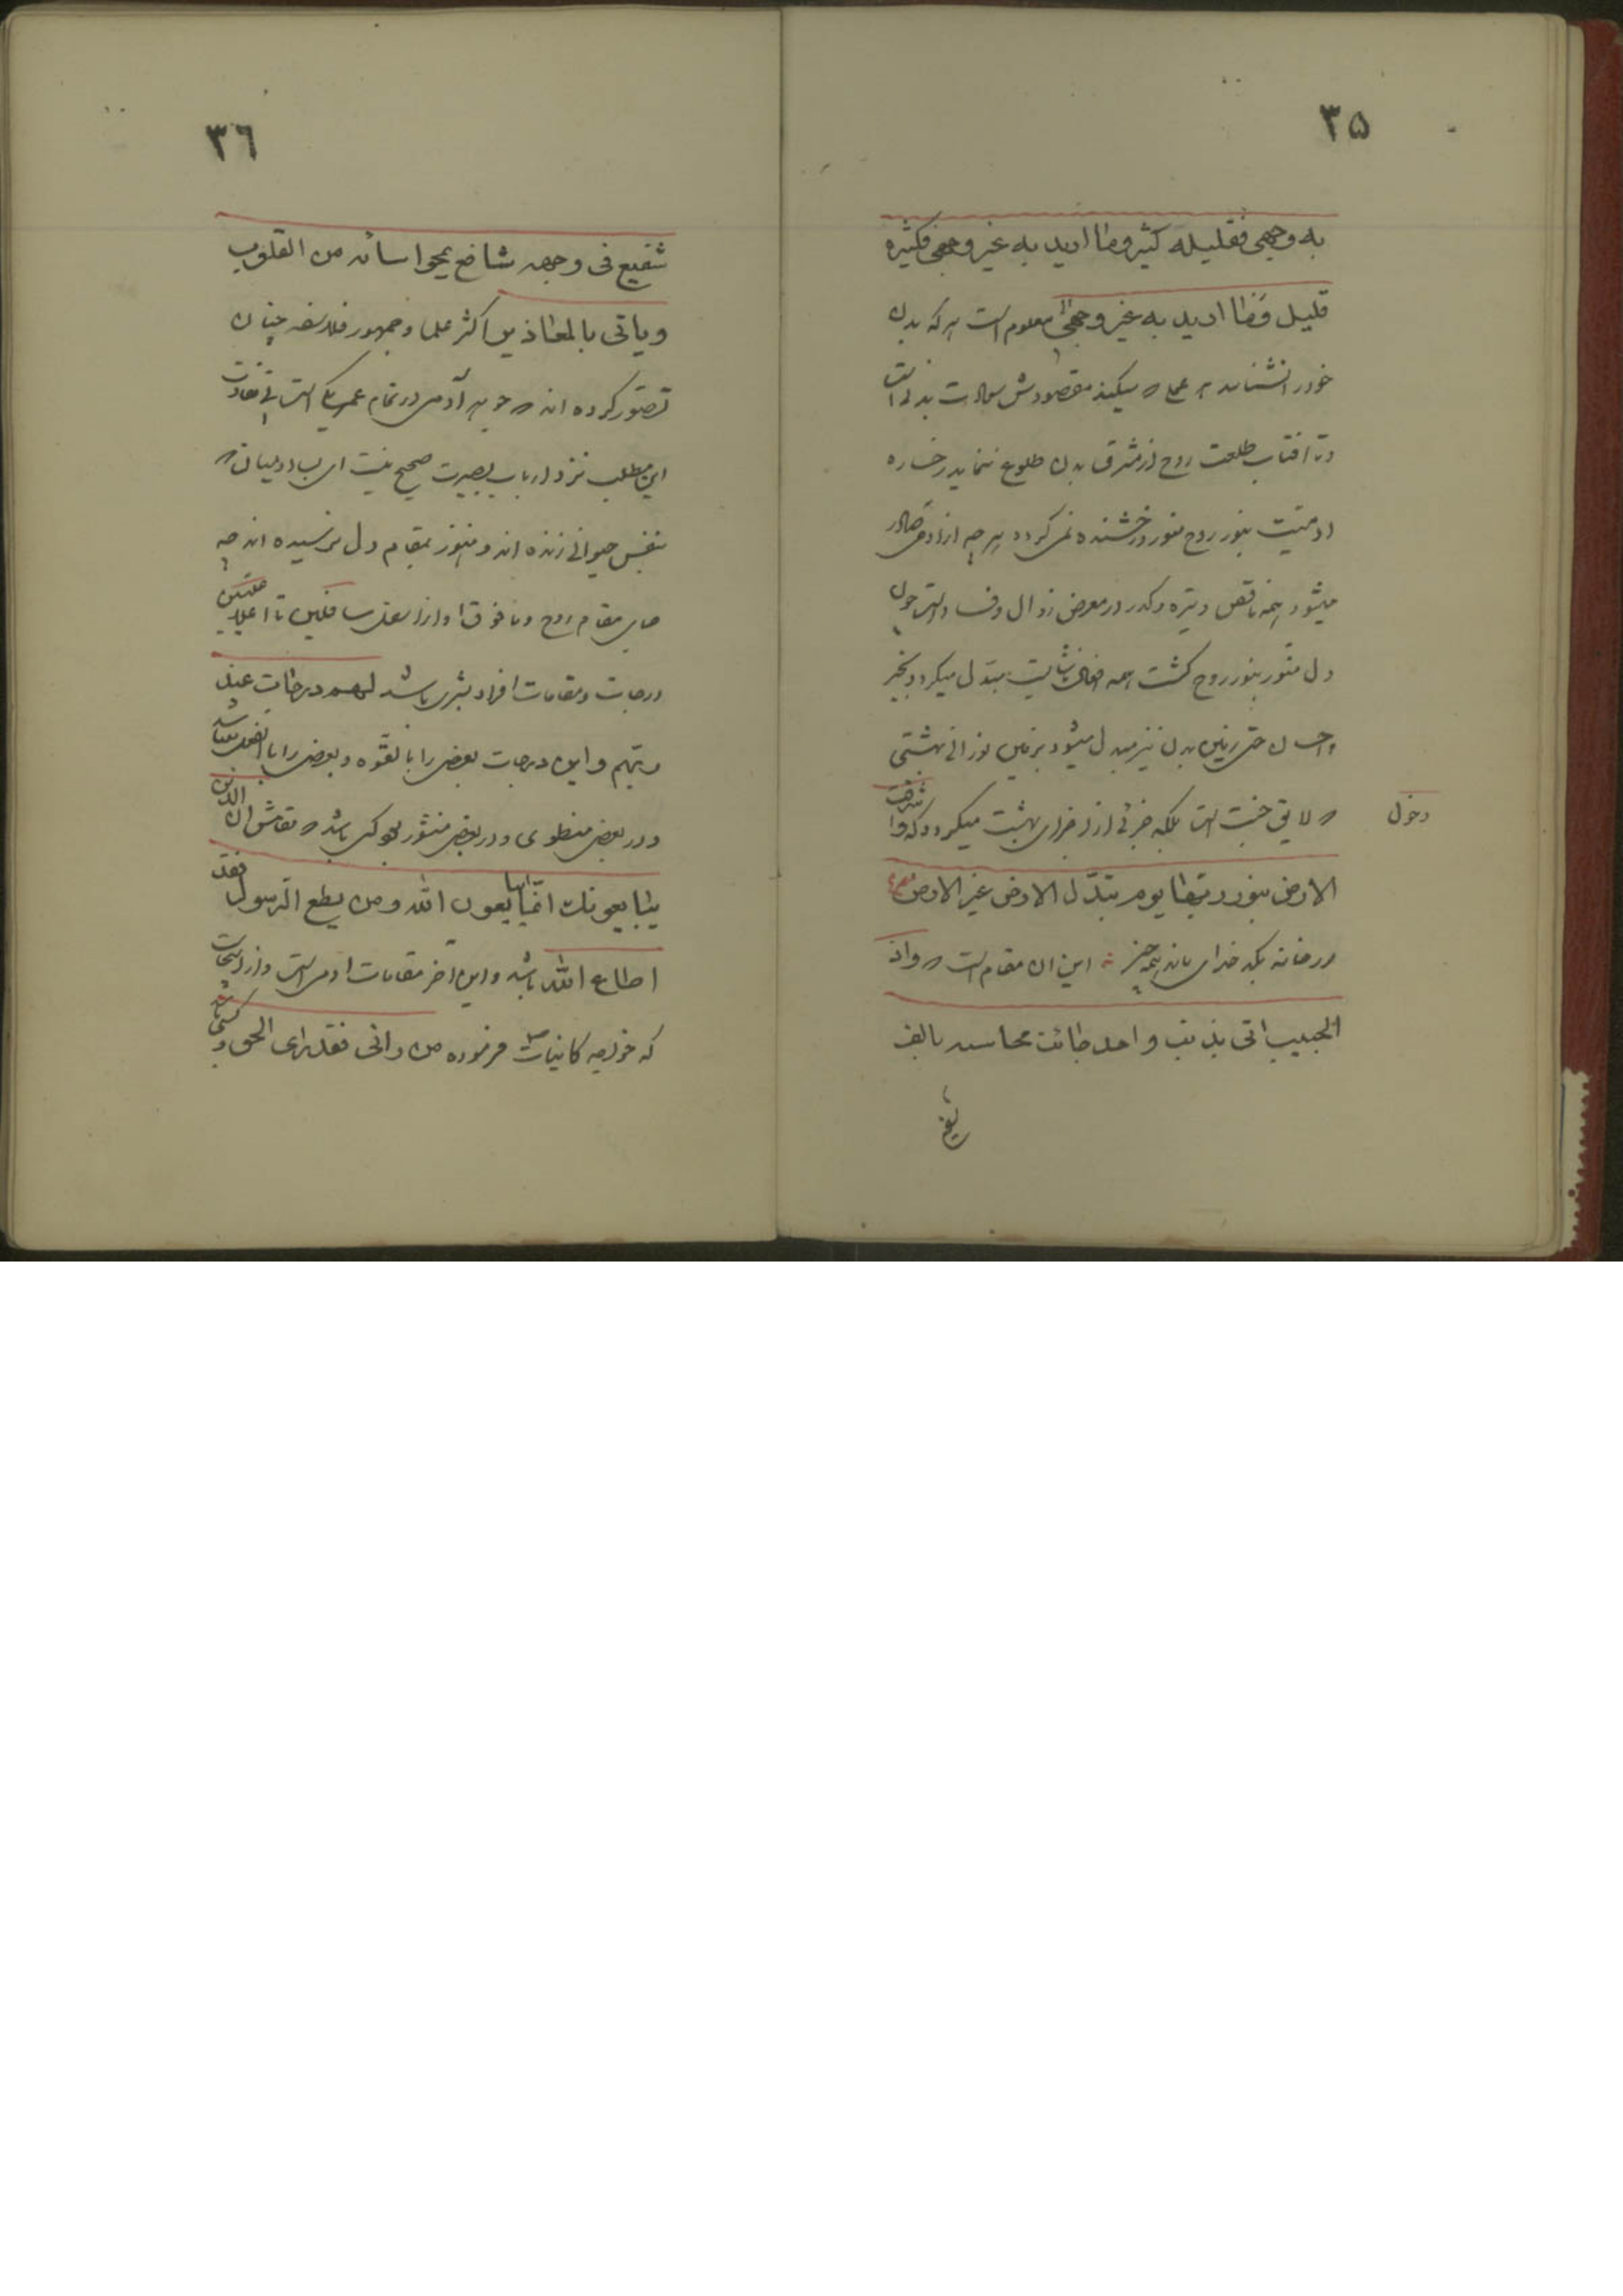 ۳۵
به وجهی فقلیله کثیر وما ارید به غیر وجهی فکثیره
قلیل فما ارید به غیر وجهی معلوم است هر که بدن
خود را نشناسد هر عمل که میکند مقصودش بدن است
و تا افتاب طلعت روح از مشرق بدن طلوع ننماید رخساره
ادمیت بنور روح منور و درخشنده نمی گردد هر چه از او صادر
میشود همه ناقص و تیره و کدر در معرض زوال و فساد است چون
دل منور بنور روح گشت همه مبتدل میگردد بخیر
و احسان حتی زمین بدن نیز مبدل میشود بزمین نورانی بهشتی
که لایق دخول جنت است بلکه جزئی از اجزای بهشت میگردد که واشرقت
الارض بنور ربها یوم تبدل الارض غیر الارض مصرع
در خانه بکد خدای ماند همه چیز این ان مقام است که واذ
الحبیب اتی بذنب واحد جائت محاسنه بالف
شفیع
۳٦
شفیع فی وجهه شافع یمحو اسائه من القلوب
ویاتی بالمعاذیر اکثر علما و جمهور فلاسفه چنان
تصور کرده اند که جوهر آدمی در تمام عمر یکی است بی تفاوت
این مطلب نزد ارباب بصیرت صحیح نیست ای بسا ادمیان که
بنفس حیوانی زنده اند و هنوز بمقام دل نرسیده اند چه
جای مقام روح و ما فوق او از اسفل سافلین تا اعلا علیین
درجات و مقامات افراد بشری باشد لهم درجات عند
ربهم و این درجات بعضی را بالقوه و بعضی را بالفعل باشد
و در بعضی منطوی و در بعضی منشور بود کسی باشد که مقامش ان الذین
یبایعونک انما یبایعون الله ومن یطع الرسول فقد
اطاع الله باشد و این آخر مقامات ادمی است و از اینجاست
که خواجه کاینات ص فرموده من رانی فقد رای الحق و کسی باشد